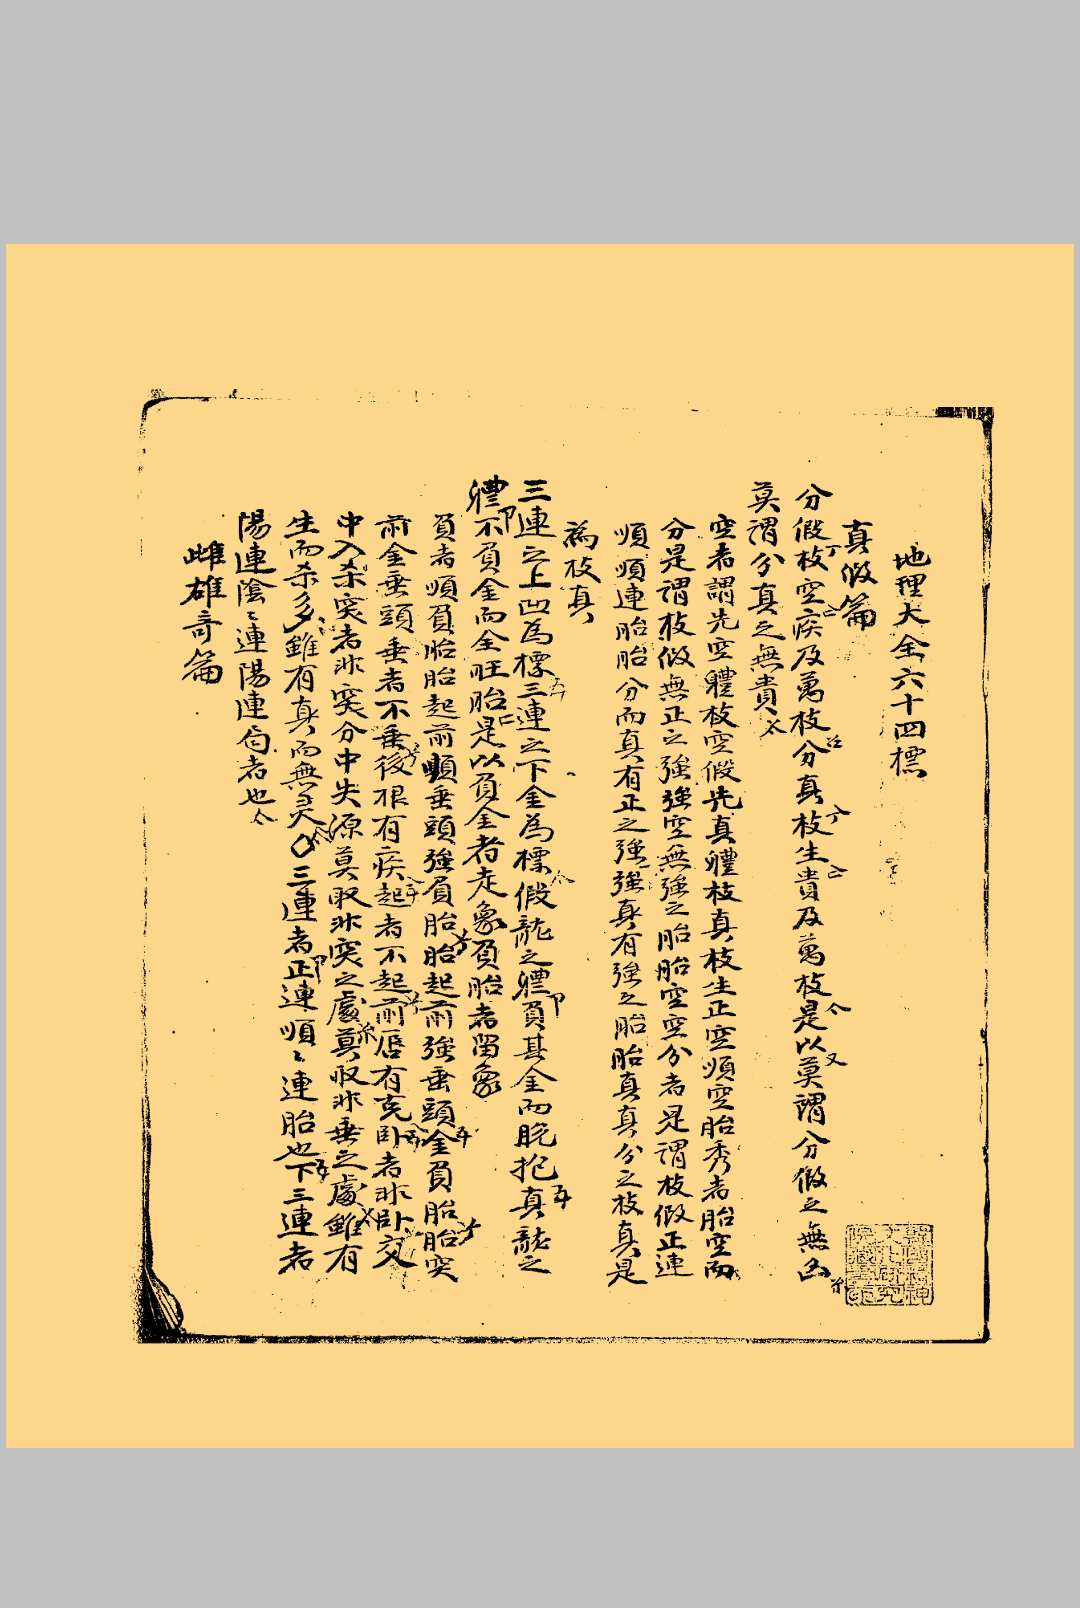 地理大全六十四標
真假篇
分假枝空疾及萬枝分真枝生貴及萬枝是以莫謂分假之無凶
莫謂分真之無貴
空者謂先空軆枝空假先真軆枝真枝生正空順空胎秀者胎空而
分是謂枝假無正之強強空無強之胎胎空空分者是謂枝假正連
順順連胎胎分而真有正之強強真有強之胎胎真真分之枝真是
為枝真
三連之上凹為標三連之下金為標假龍之軆負其金而脫抱真龍之
軆不負金而全旺胎是以負金者走象負胎者留象
負者順負胎胎起前順垂頭強負胎胎起前強垂頭金負胎胎突
前金垂頭垂者不垂後根有疾起者不起前唇有克卧者非卧交
中入杀突者非突分中失源莫取非突之處莫取非垂之處雖有
生而杀多雖有真而無灵〇三連者正連順〻連胎也下三連者
陽連陰〻連陽連向者也
雌雄奇篇